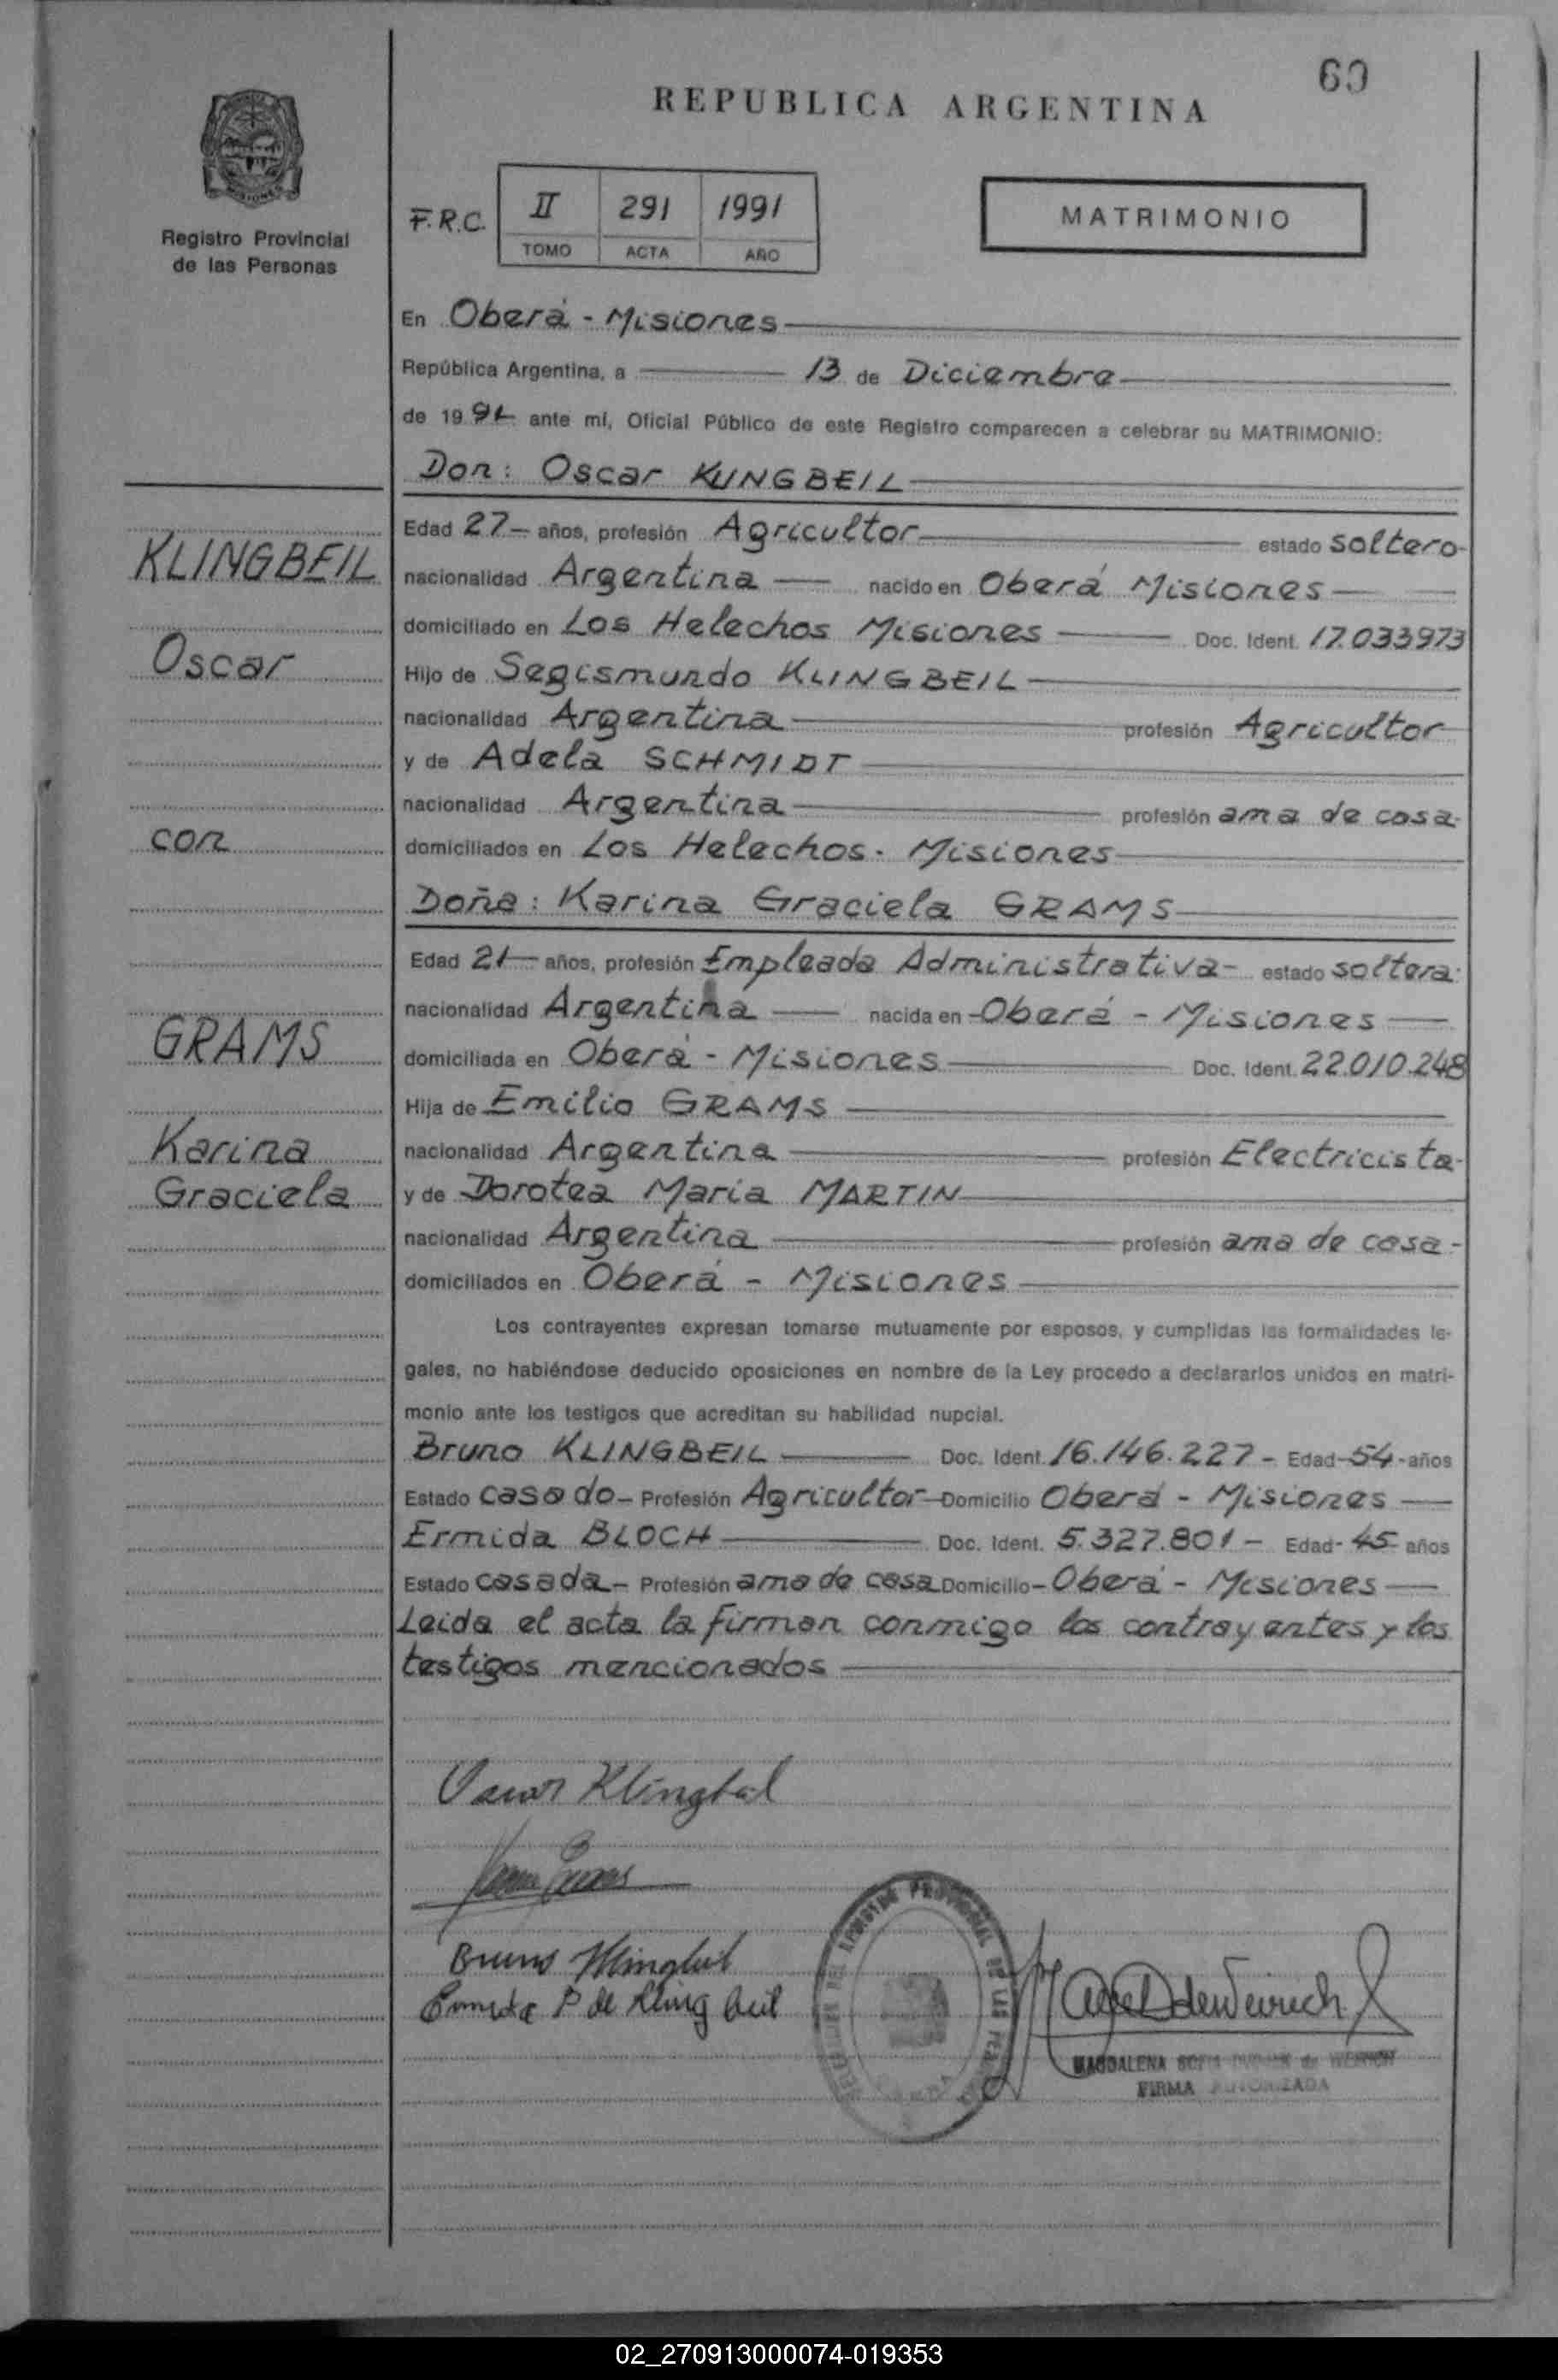 60
REPUBLICA ARGENTINA
Registro Provincial
de las Personas
F.R.C. II 291 1991
TOMO ACTA AÑO
MATRIMONIO
En Oberá - Misiones
República Argentina, a 13 de Diciembre
de 1991 ante mí, Oficial Público de este Registro comparecen a celebrar su MATRIMONIO:
Don: Oscar KLINGBEIL
Edad 27 años, profesión Agricultor estado soltero
KLINGBEIL
nacionalidad Argentina nacido en Oberá Misiones
domiciliado en Los Helechos Misiones Doc. Ident. 17.033973
Oscar
Hijo de Segismundo KLINGBEIL
nacionalidad Argentina profesión Agricultor
y de Adela SCHMIDT
nacionalidad Argentina profesión ama de casa
con
domiciliados en Los Helechos. Misiones
Doña: Karina Graciela GRAMS
Edad 21 años, profesión Empleada Administrativa - estado soltera
nacionalidad Argentina nacida en Oberá - Misiones
GRAMS
domiciliada en Oberá - Misiones Doc. Ident. 22.010.248
Hija de Emilio GRAMS
Karina
nacionalidad Argentina profesión Electricista
Graciela
y de Dorotea Maria MARTIN
nacionalidad Argentina profesión ama de casa
domiciliados en Oberá - Misiones
Los contrayentes expresan tomarse mutuamente por esposos, y cumplidas las formalidades le-
gales, no habiéndose deducido oposiciones en nombre de la Ley procedo a declararlos unidos en matri-
monio ante los testigos que acreditan su habilidad nupcial.
Bruno KLINGBEIL Doc. Ident. 16.146.227 - Edad 54 años
Estado casado - Profesión Agricultor Domicilio Oberá - Misiones
Ermida BLOCH Doc. Ident. 5.327.801 - Edad 45 años
Estado casada - Profesión ama de casa Domicilio Oberá - Misiones
Leida el acta la firman conmigo los contrayentes y los
testigos mencionados
Oscar Klingbeil
Karina Grams
Bruno Klingbeil
Ermida P de Klingbeil
MAGDALENA SOFIA de WEIRICH
FIRMA AUTORIZADA
02_270913000074-019353